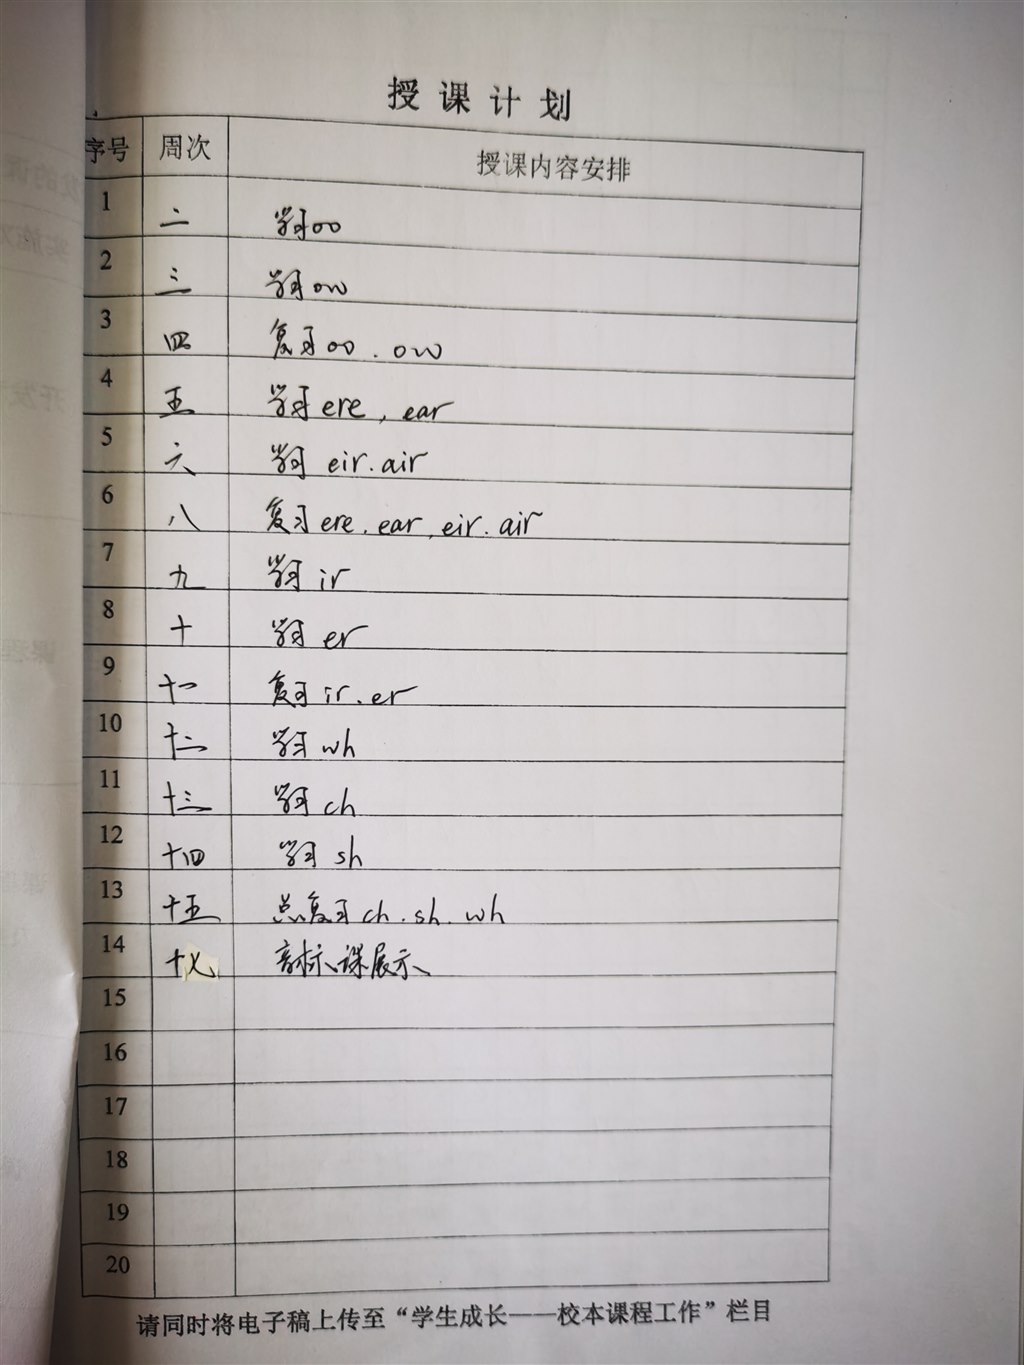 授课计划
序号 周次 授课内容安排
1 二 学习oo
2 三 学习ow
3 四 复习oo.ow
4 五 学习ere,ear
5 六 学习eir.air
6 八 复习ere.ear,eir.air
7 九 学习ir
8 十 学习er
9 十一 复习ir.er
10 十二 学习wh
11 十三 学习ch
12 十四 学习sh
13 十五 总复习ch.sh.wh
14 十七 音标课展示
15
16
17
18
19
20
请同时将电子稿上传至“学生成长——校本课程工作”栏目